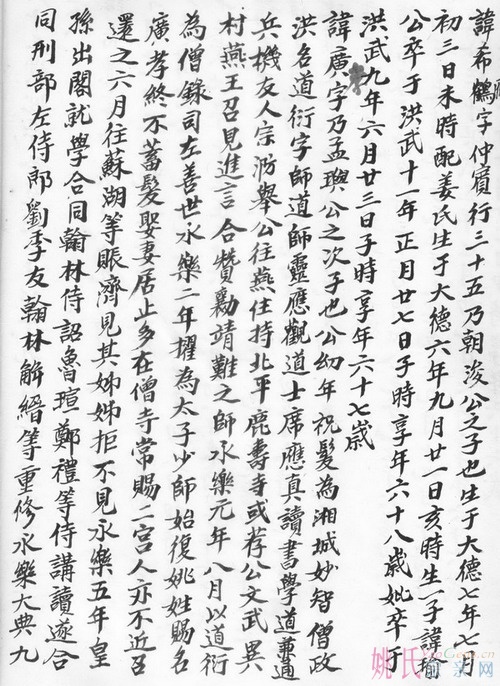 諱希鶴字仲賓行三十五乃朝浚公之子也生于大德七年七月
初三日未時配姜氏生于大德六年九月廿一日亥時生一子諱瑜
公卒于洪武十一年正月廿七日子時享年六十八歲妣卒于
洪武九年六月廿三日子時享年六十七歲
諱廣字乃孟璵公之次子也公幼年祝髮為湘城妙智僧政
洪名道衍字師道師靈應觀道士席應真讀書學道兼通
兵機友人宗泐舉公往燕住持北平鹿壽寺或荐公文武異
村燕王召見進言合贊勷靖難之師永樂元年八月以道衍
為僧錄司左善世永樂二年擢為太子少師始復姚姓賜名
廣孝終不蓄髮娶妻居止多在僧寺常賜二宮人亦不近召
還之六月往蘇湖等賬濟見其姊姊拒不見永樂五年皇
孫出閣就學合同翰林侍詔魯瑄鄭禮等侍講讀遂合
同刑部左侍郎劉季友翰林解縉等重修永樂大典九
姚氏